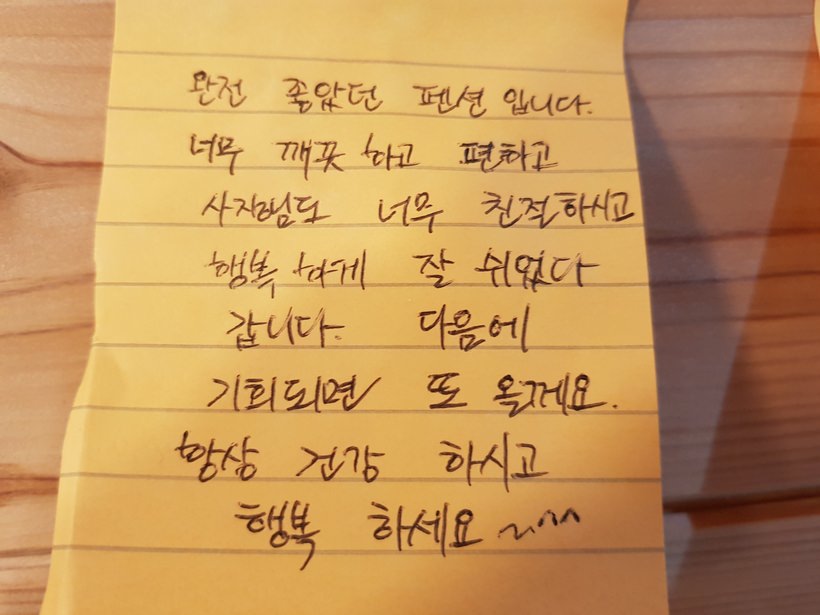 완전 좋았던 펜션 입니다.
너무 깨끗 하고 편하고
사장님도 너무 친절하시고
행복 하게 잘 쉬었다
갑니다. 다음에
기회되면 또 올께요.
항상 건강 하시고
행복 하세요 ~^^